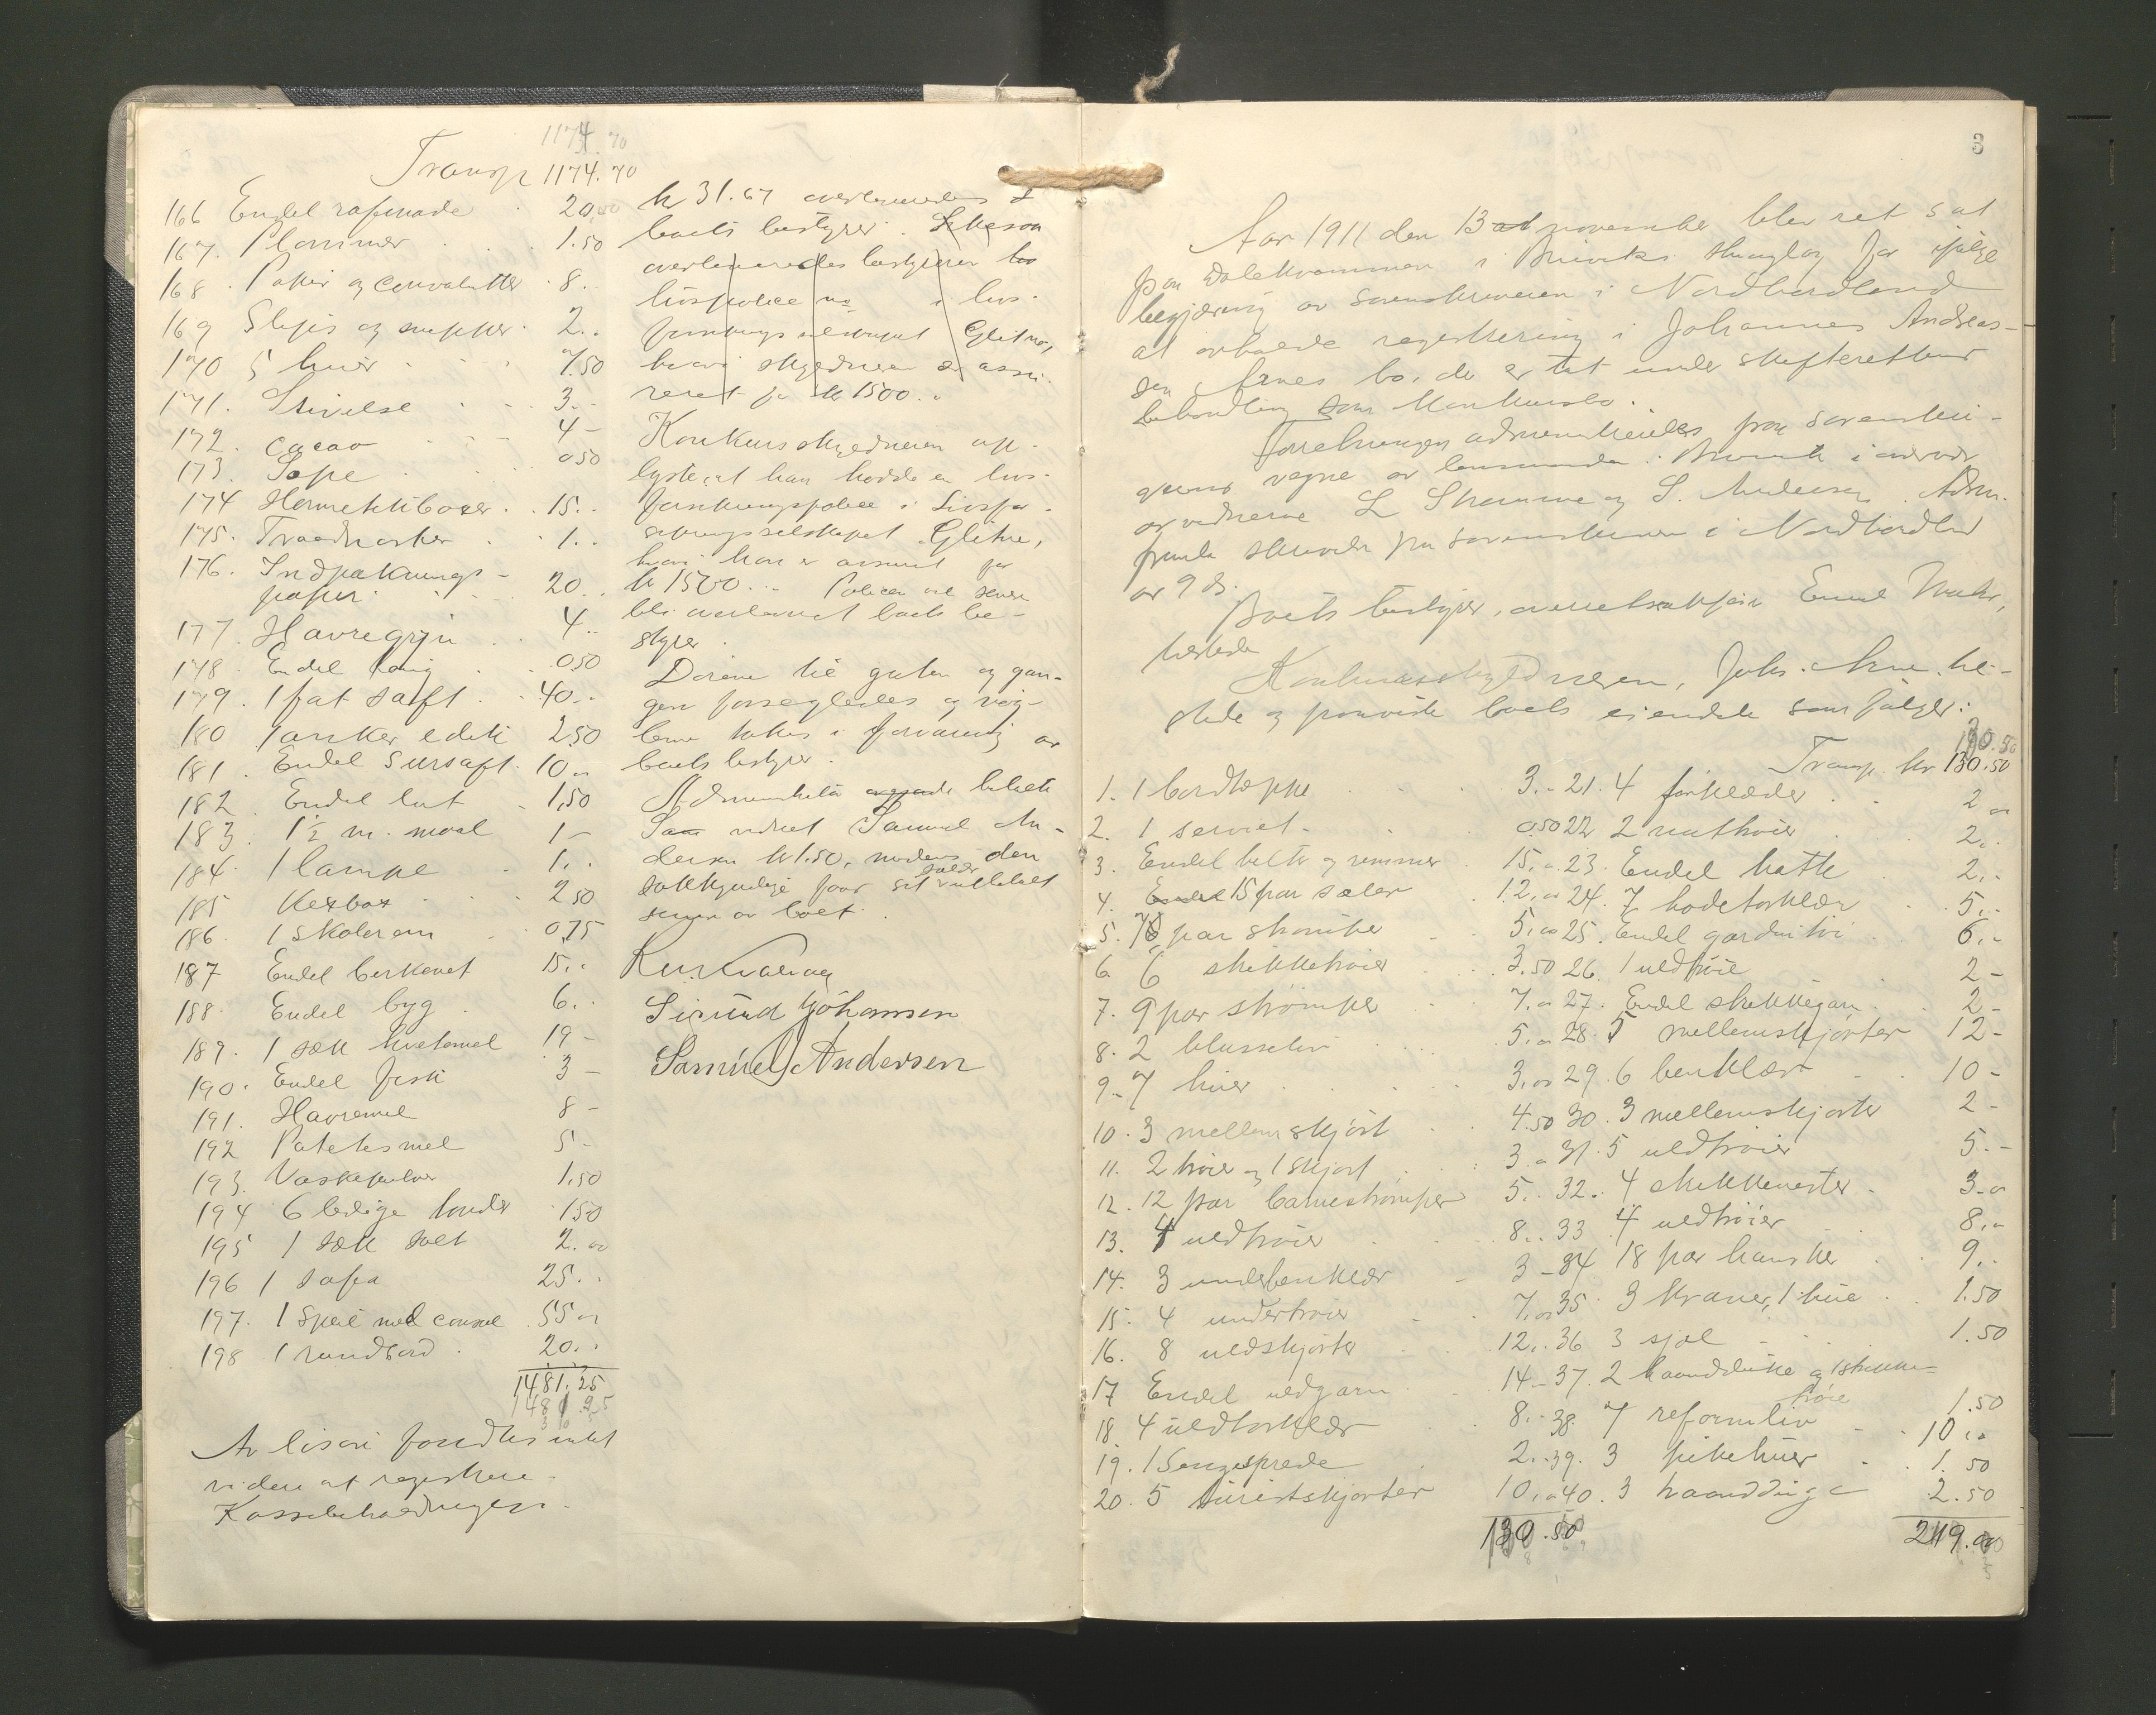 1174.70
Transp 1174.70
166 Endel rafinade 20,00
167. Plommer 1.50
168. Papir og convolutter 8..
169 Slips og snipper. 2..
170 5 huer 7.50
171. Stivelse 3.-
172. Cacao 4-
173. Sepe 050
174 Hermetikboxer. 15..
175. Traadrasker 1..
176. Indpaknings-
papir. 20..
177. Havregryn 4..
178. Endel 0.50
179. 1 fat saft. 40..
180 1 anker edik 2.50
181. Endel Sursaft. 10..
182. Endel lut 1,50
183. 1½ m. maal 1-
184. 1 lampe 1..
185 Kexbox 2.50
186. 1 skolerem 0,75
187 Endel berkonet 15..
188. Endel byg 6..
189. 1 sæk hvetemel 19-
190. Endel fisk 3-
191. Havremel 8-
192 Potetesmel 5-
193. Vaskepulver 1.50
194 6 ledige tønder 1.50
195 1 sæk salt 2.00
196 1 sofa 25..
197. 1 speil med consol 55..
198 1 rundbord 20..
1481.25
1481.25
Av løsøre fandtes intet
videre at registrere.
Kassebeholdningen
kr 31.67 overleveredes
boets bestyrer.
overleveredes bestyreren
livspolice no i livs-
forsikringsselskapet Glitne,
hvori skyldneren er assu-
reret for kr 1500..
Konkursskyldneren op-
lyste, at han hadde en livs-
forsikringspolice i Livsfor-
sikringsselskapet Glitne,
hvori han er assurert for
kr 1500... Policen vil senere
bli overlevert boets be-
styrer.
Dørene til gaten og gan-
gen forsegledes og nøg-
lerne tokes i forvaring av
boets bestyrer.
Administrator betalte
vidnet Samuel An-
dersen kr 1.50, medens den
sakkyndige faar sit utbetalt
senere av boet.
Sigurd Johansen
Samuel Andersen
3
Aar 1911 den 13 november blev ret sat
paa Dalekvammen i Bruviks thinglag for ifølge
begjæring av sorenskriveren i Nordhordland
at avholde registrering i Johannes Andreas-
sen Arnes bo, der er tat under skifterettens
behandling som konkursbo.
Forretningen administreredes paa sorenskri-
verens vegne av lensmanden i Bruvik i overvær
av vidnerne L Stamme og S. Andersen. Adm.
fremla skrivelse fra sorenskriveren i Nordhordland
av 9 ds.
Boets bestyrer, overretssakfører Emil Mohr,
tilstede
Konkursskyldneren, Johs. Arne, til-
stede og paaviste boets eiendele som følger:
130.50
Transp kr 130.50
1. 1 bordteppe 3..
2. 1 serviet. 0.50
3. Endel belter og remmer 15,..
4. Endel 15 par seler 12,..
5. 78 par strømper 5,00
6. 6 strikketrøier 3.50
7. 9 par strømper 7,..
8. 2 bluseliv 5,..
9. 7 huer 3,00
10. 3 mellemskjørt 4.50
11. 2 trøier og 1 skjort 3..
12. 12 par barnestrømper 5..
13. 4 uldtrøier 8..
14. 3 underbenklær 3-
15. 4 undertrøier 7,00
16. 8 uldskjorter 12..
17 Endel uldgarn 14-
18 4 uldtørklær 8.-
19. 1 Sengesprede 2..
20. 5 turistskjorter 10,..
130.50
21. 4 forklæder 2..
22 2 nattrøier 2..
23. Endel hatte 2,-
24. 7 hodetørklær 5..
25. Endel gardintøi 6.-
26. 1 uldtrøie 2-
27. Endel strikkegarn 2-
28. 5 mellemskjorter 12-
29. 6 benklær 10-
30. 3 mellemskjorter 2-
31. 5 uldtrøier 5.-
32. 4 strikkevester 3-
33 4 uldtrøier 8,..
34 18 par hansker 9..
35. 3 kraver, 1 hue 1.50
36 3 sjal 1.50
37. 2 haandduke og 1 strikke-
trøie 1.50
38. 7 reformliv 10..
39. 3 pikehuer 1.50
40. 3 2.50
249.00